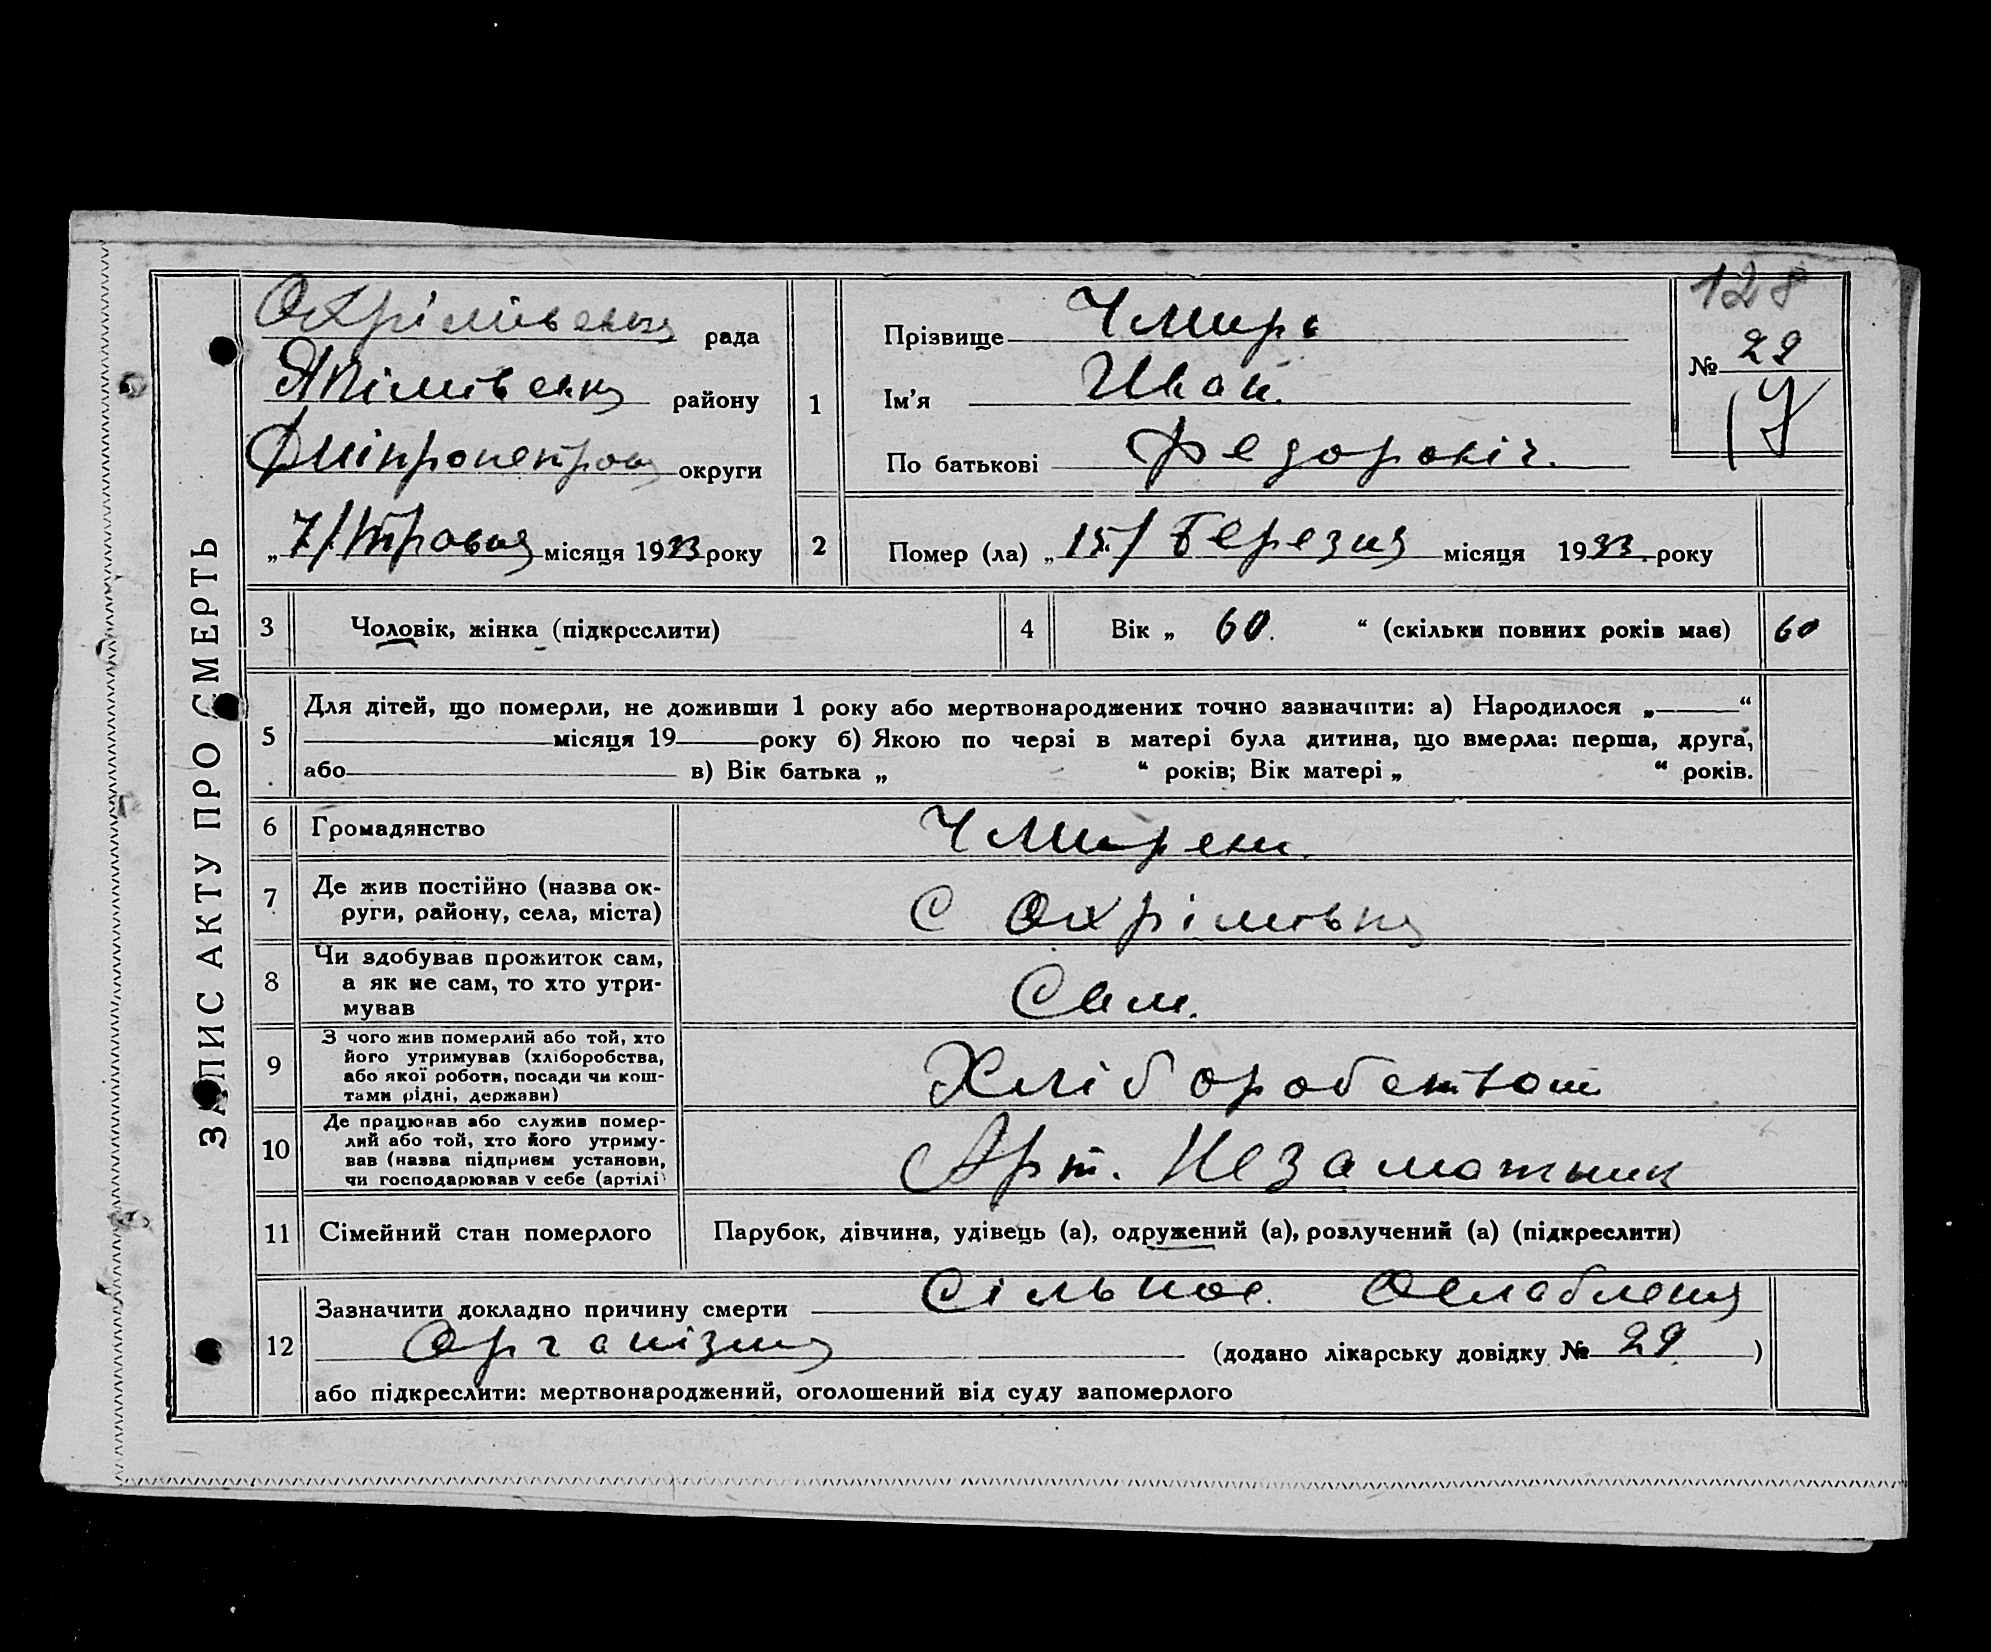 ЗАПИС АКТУ ПРО СМЕРТЬ
Охрімівська рада
Якімівська району
Дніпропетров округи
„ 7/Травня місяця 1933 року
1
Прізвище Чмирь
Ім'я Иван.
По батькові Федоровіч.
128
№ 29
17
2
Помер (ла) „ 15/Березня місяця 1933 року
3
Чоловік, жінка (підкреслити)
4
Вік „ 60. “ (скільки повних років має)
60
5
Для дітей, що померли, не доживши 1 року або мертвонароджених точно зазначити: а) Народилося „ “
місяця 19 року б) Якою по черзі в матері була дитина, що вмерла: перша, друга,
або в) Вік батька „ “ років; Вік матері „ “ років.
6
Громадянство
7
Де жив постійно (назва ок-
руги, району, села, міста)
С Охрімівка
8
Чи здобував прожиток сам,
а як не сам, то хто утри-
мував
Сам.
9
З чого жив померлий або той, хто
його утримував (хліборобства,
або якої роботи, посади чи кош-
тами рідні, держави)
Хліборобством
10
Де працював або служив помер-
лий або той, хто його утриму-
вав (назва підприєм установи,
чи господарював у себе (артілі)
Арт. Незаможник
11
Сімейний стан померлого
Парубок, дівчина, удівець (а), одружений (а), розлучений (а) (підкреслити)
12
Зазначити докладно причину смерти Сільное. Ослабленя
Организма (додано лікарську довідку № 29 )
або підкреслити: мертвонароджений, оголошений від суду запомерлого